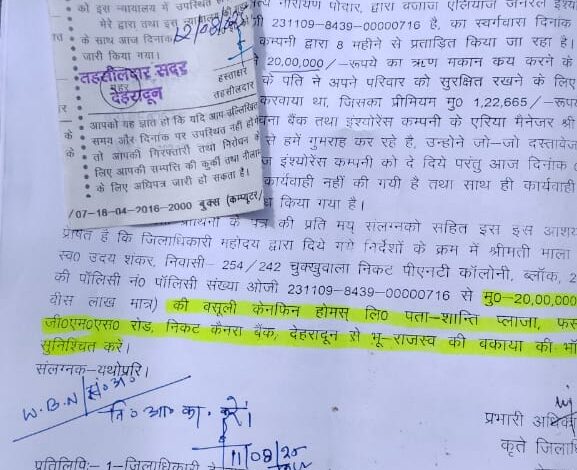 को इस न्यायालय में उपस्थित
मेरे द्वारा तथा इस न्यायालय की
के साथ आज दिनांक 12/08/25
जारी किया गया।
तहसीलदार सदर
देहरादून
हस्ताक्षर
तहसीलदार
आपको यह ज्ञात हो कि यदि आप उल्लिखित
समय और दिनांक पर उपस्थित नहीं होंगे
तो आपकी गिरफ्तारी तथा निरोधन के
लिए आपकी सम्पत्ति की कुर्की तथा नीलाम
के लिए अधिपत्र जारी हो सकता है।
/07-18-04-2016-2000 बुक्स (कम्प्यूटर/
नारायण पोदार, द्वारा बजाज एलियांज जनरल इंश्यो
231109-8439-00000716 है, का स्वर्गवास दिनांक
कम्पनी द्वारा 8 महीने से प्रताड़ित किया जा रहा है।
20,00,000/-रूपये का ऋण मकान कय करने के
के पति ने अपने परिवार को सुरक्षित रखने के लिए
करवाया था, जिसका प्रीमियम मु0 1,22,665/-रूप
बैंक तथा इंश्योरेंस कम्पनी के एरिया मैनेजर श्री
से हमें गुमराह कर रहे है, उन्होने जो-जो दस्तावेज
इंश्योरेंस कम्पनी को दे दिये परंतु आज दिनांक
कार्यवाही नहीं की गयी है तथा साथ ही कार्यवाही
किया गया है।
के पत्र की प्रति मय् संलग्नको सहित इस इस आशय
प्रेषित है कि जिलाधिकारी महोदय द्वारा दिये गये निर्देशों के क्रम में श्रीमती माला
स्व0 उदय शंकर, निवासी- 254/242 चुक्खुवाला निकट पीएनटी कॉलोनी, ब्लॉक, 2
की पॉलिसी नं0 पॉलिसी संख्या ओजी 231109-8439-00000716 से मु0-20,00,000
बीस लाख मात्र) की वसूली केनफिन होमस् लि0 पता-शान्ति प्लाजा, फर्स
जी0एम0एस0 रोड, निकट कैनरा बैंक, देहरादून से भू-राजस्व की बकाया की भाँ
सुनिश्चित करे।
संलग्नक-यथोपरि।
W.B.N/सं०अ०
नि० आ० का० करें।
11/08/25
प्रभारी अधिका
कृते जिला
प्रतिलिपि:- 1-जिलाधिकारी